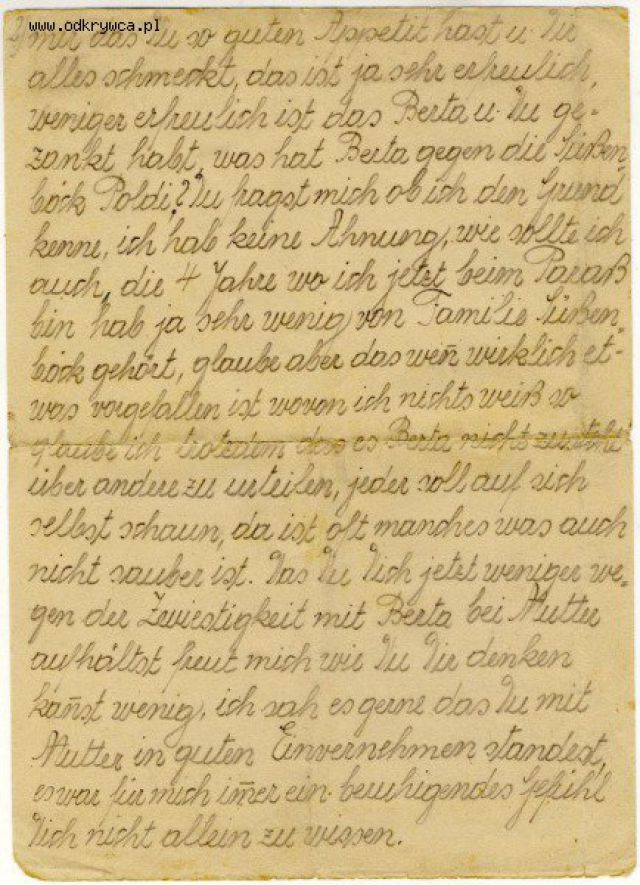 www.odkrywca.pl
2) mir das Du so guten Appetit hast u. Dir
alles schmeckt, das ist ja sehr erfreulich,
weniger erfreulich ist das Berta u. Du ge-
zankt habt, was hat Berta gegen die Süßen-
böck Poldi? Du fragst mich ob ich den Grund
kenne, ich hab keine Ahnung, wie sollte ich
auch, die 4 Jahre wo ich jetzt beim Baraß
bin hab ja sehr wenig von Familie Süßen-
böck gehört, glaube aber das weñ wirklich et-
was vorgefallen ist wovon ich nichts weiß so
glaube ich trotzdem das es Berta nicht zusteht
über andere zu urteilen, jeder soll auf sich
selbst schaun, da ist oft manches was auch
nicht sauber ist. Das Du Dich jetzt weniger we-
gen der Zwiestigkeit mit Berta bei Mutter
aufhältst freut mich wie Du Dir denken
kañst wenig, ich sah es gerne das Du mit
Mutter in guten Einvernehmen standest,
es war für mich im̄er ein beruhigendes Gefühl
Dich nicht allein zu wissen.